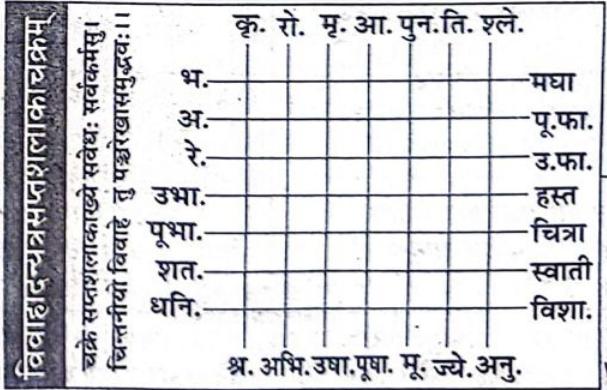 विवाहादन्यत्रसप्तशलाकाचक्रम्
चक्रे सप्तशलाकाख्ये सवेधः सर्वकर्मसु।
चिन्तनीयो विवाहे तु पञ्चरेखासमुद्भवः।।
कृ. रो. मृ. आ. पुन. ति. श्ले.
भ. मघा
अ. पू.फा.
रे. उ.फा.
उभा. हस्त
पूभा. चित्रा
शत. स्वाती
धनि. विशा.
श्र. अभि. उषा. पूषा. मू. ज्ये. अनु.